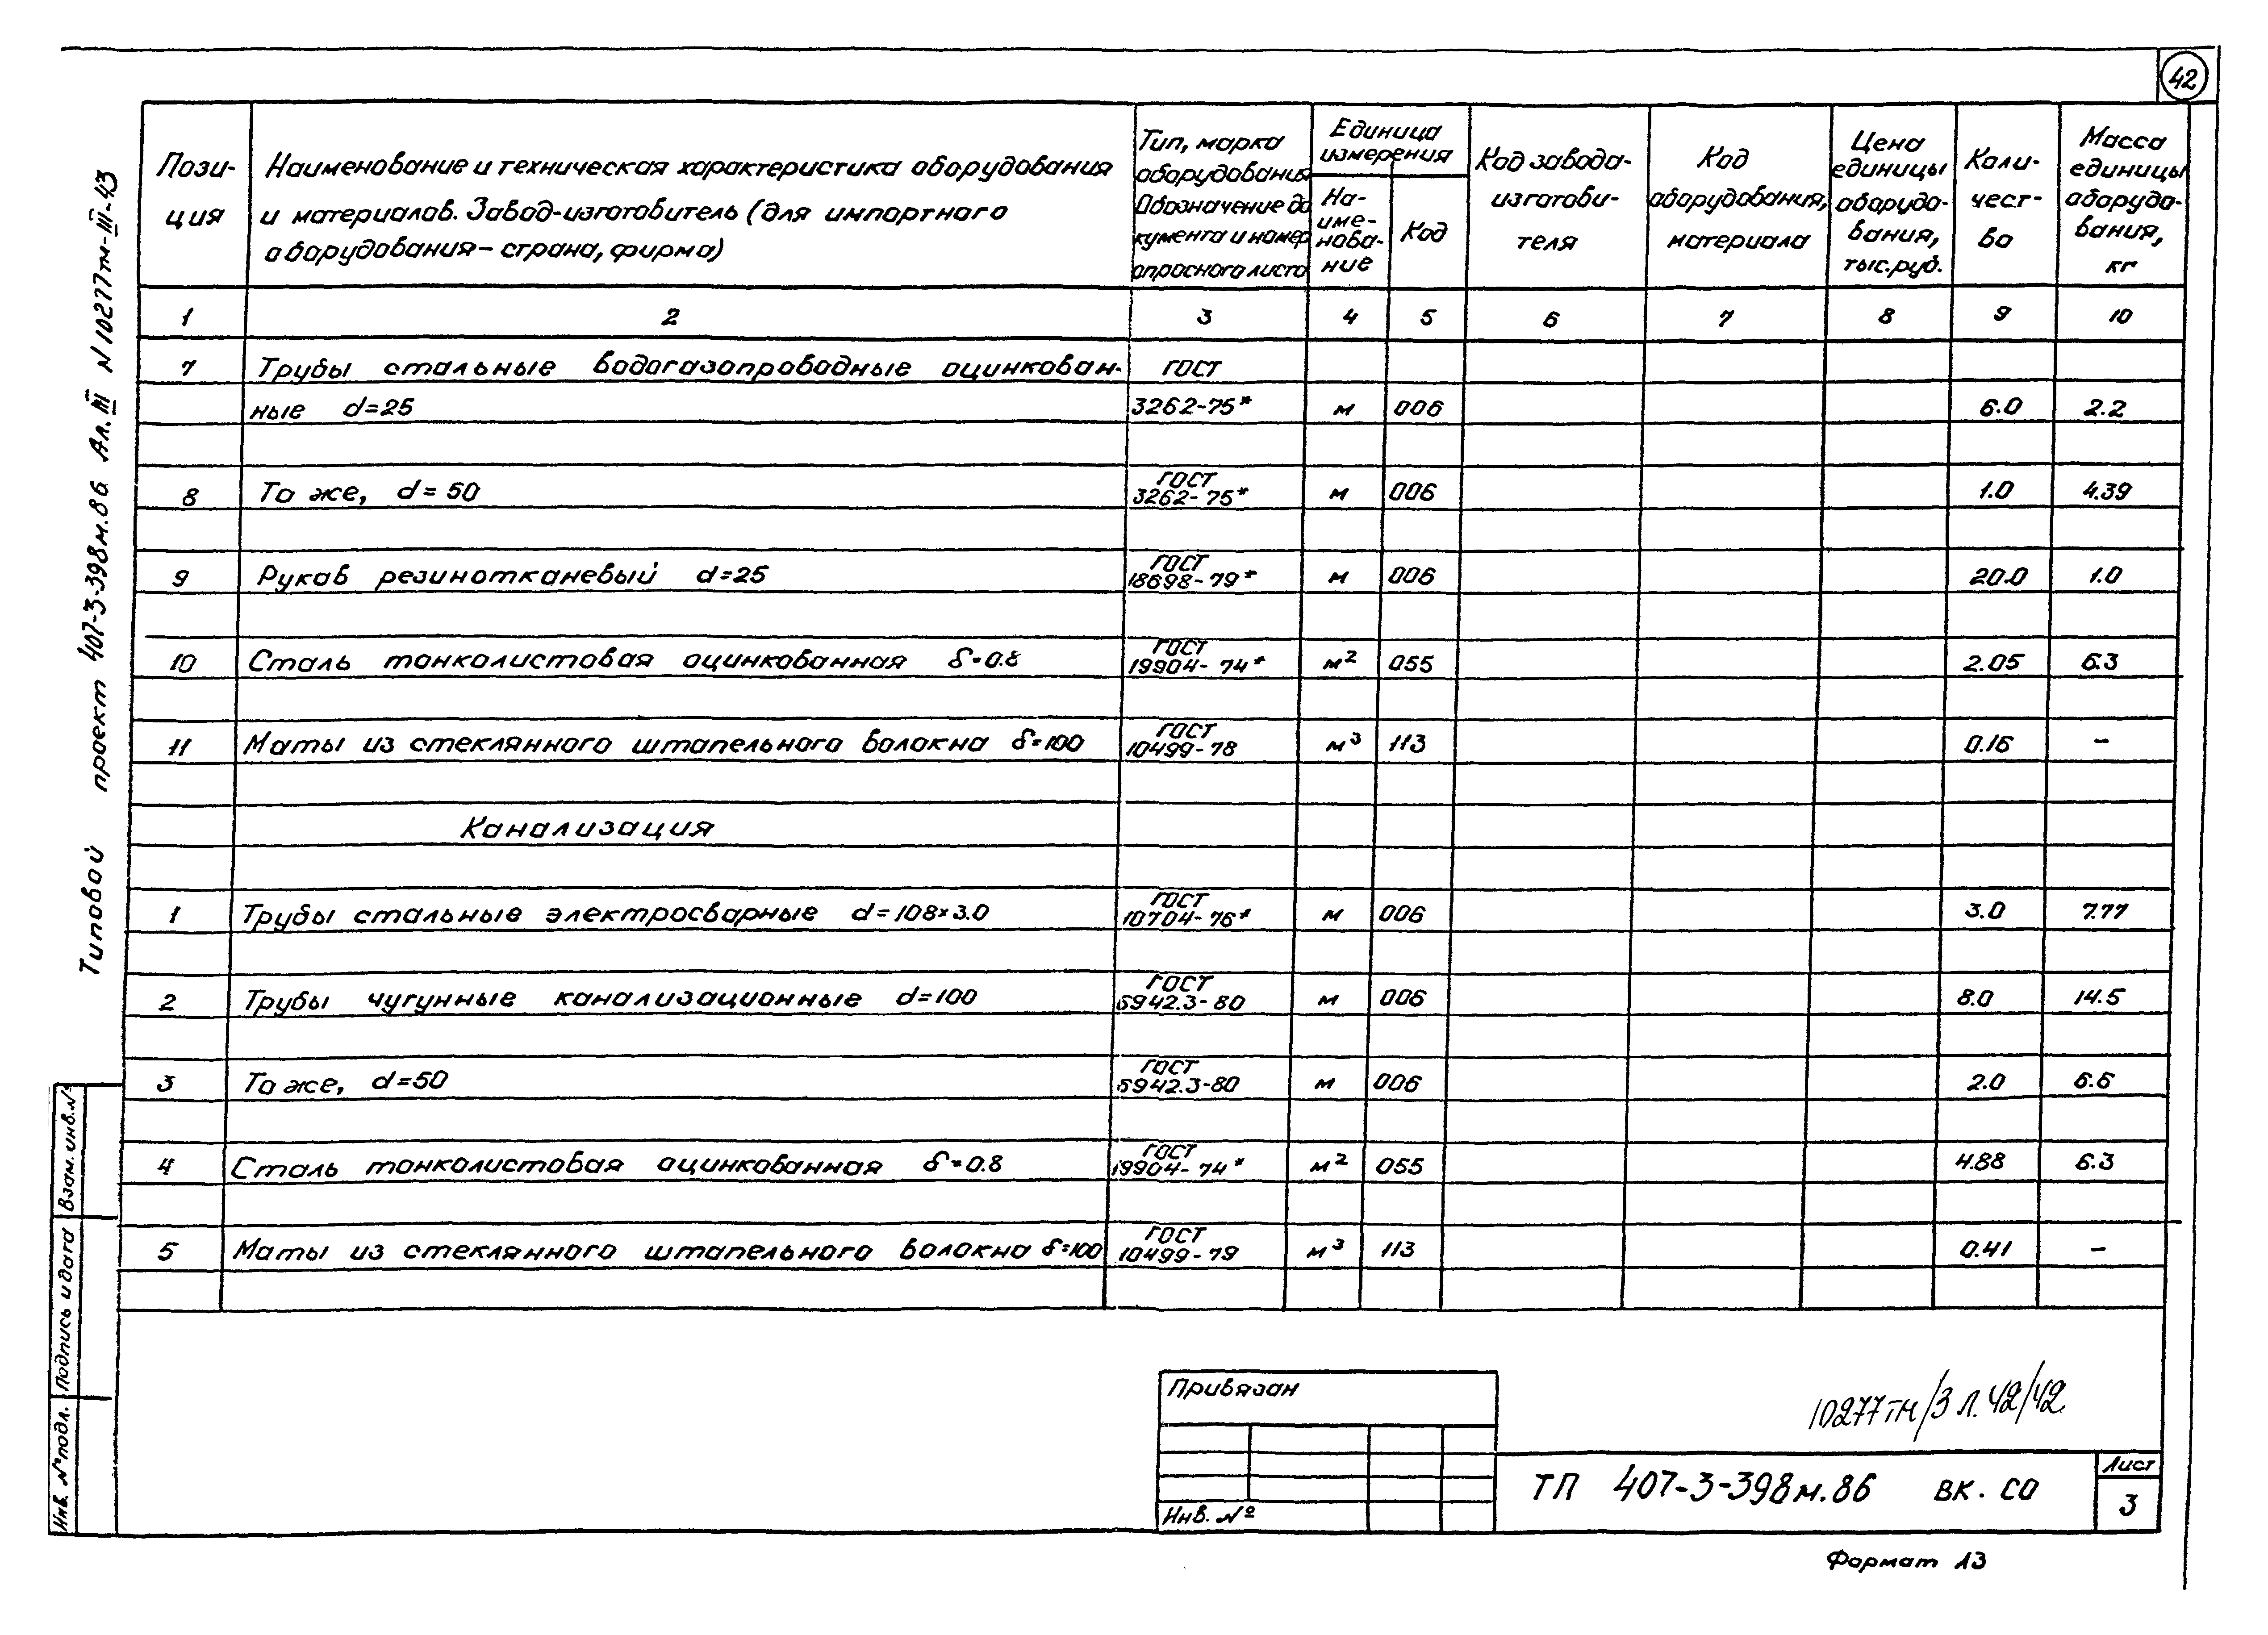 42
Пози-
ция
Наименование и техническая характеристика оборудования
и материалов. Завод-изготовитель (для импортного
оборудования – страна, фирма)
Тип, марка
оборудования
Обозначение до
кумента и номер
опросного листа
Единица
измерения
На-
име-
нова-
ние
Код
Код завода-
изготови-
теля
Код
оборудования,
материала
Цена
единицы
оборудо-
вания,
тыс.руб.
Коли-
чест-
во
Масса
единицы
оборудо-
вания,
кг
1 2 3 4 5 6 7 8 9 10
7 Трубы стальные водогазопроводные оцинкован- ГОСТ
ные d=25 3262-75* м 006 6.0 2.2
ГОСТ
8 То же, d=50 3262-75* м 006 1.0 4.39
ГОСТ
9 Рукав резинотканевый d=25 18698-79* м 006 20.0 1.0
ГОСТ
10 Сталь тонколистовая оцинкованная δ=0.8 19904-74* м² 055 2.05 6.3
ГОСТ
11 Маты из стеклянного штапельного волокна δ=100 10499-78 м³ 113 0.16 –
Канализация
ГОСТ
1 Трубы стальные электросварные d=108×3.0 10704-76* м 006 3.0 7.77
ГОСТ
2 Трубы чугунные канализационные d=100 6942.3-80 м 006 8.0 14.5
ГОСТ
3 То же, d=50 6942.3-80 м 006 2.0 6.6
ГОСТ
4 Сталь тонколистовая оцинкованная δ=0.8 19904-74* м² 055 4.88 6.3
ГОСТ
5 Маты из стеклянного штапельного волокна δ=100 10499-79 м³ 113 0.41 –
Типовой проект 407-3-398м.86 Ал. III N 10277тм-III-43
Взам. инв. №
Подпись и дата
Инв. № подл.
Привязан
Инв. №
10277тм/3 л. 42/42
ТП 407-3-398м.86 ВК. СО
Лист
3
Формат А3